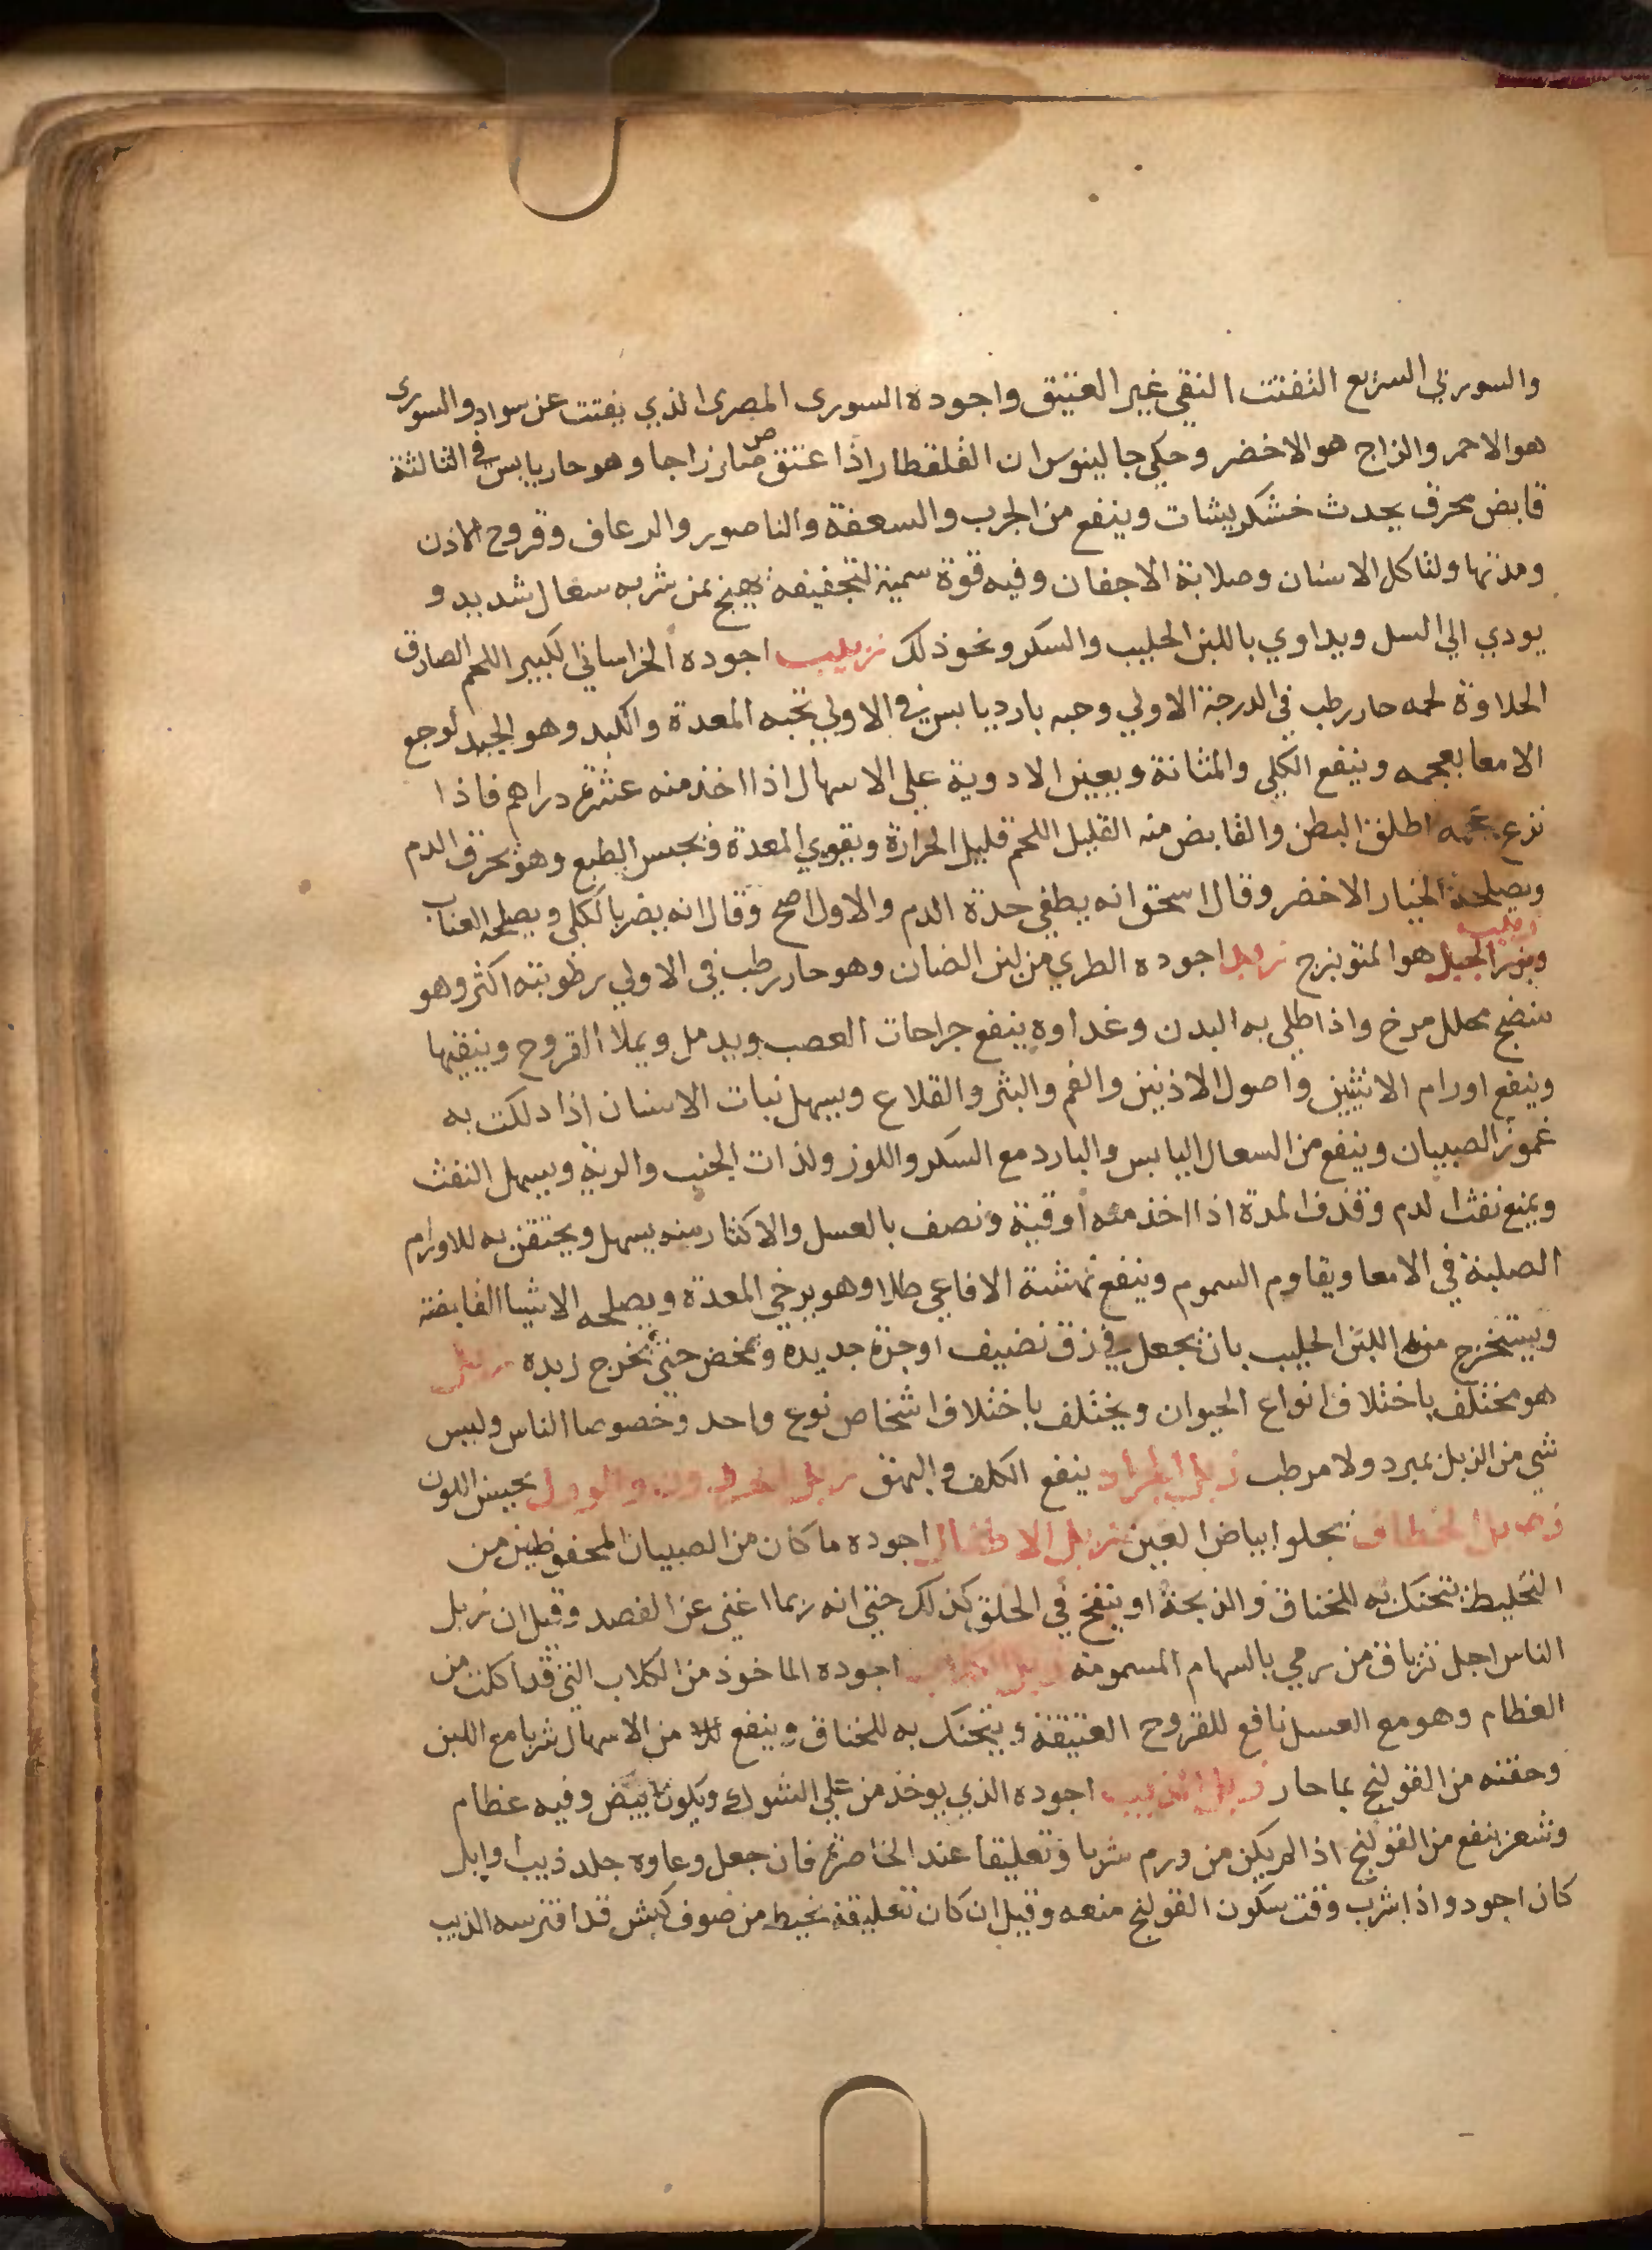 والسوري السريع التفتت النقي غير العتيق واجوده السورى المصرى الذي يفتت عن سواد والسورى
هو الاحمر والزاج هو الاخضر وحكي جالينوس ان القلقطار اذا عتق صار زاجا وهو حار يابس في الثالثة
قابض محرق يحدث خشكريشات وينفع من الجرب والسعفة والناصور والرعاف وقروح الاذن
ومدتها ولتاكل الاسنان وصلابة الاجفان وفيه قوة سمية لتجفيفه يهيج بمن شربه سعال شديد و
يودي الي السل ويداوي باللبن الحليب والسكر ونحو ذلك زبيب اجوده الخراساني الكبير اللحم الصادق
الحلاوة لحمه حار رطب في الدرجة الاولي وحبه بارد يابس في الاولي تحبه المعدة والكبد وهو الجيد لوجع
الامعا بعجمه وينفع الكلي والمثانة ويعين الادوية علي الاسهال اذا اخذ منه عشرة دراهم فاذا
نزع عجمه اطلق البطن والقابض منه القليل اللحم قليل الحرارة ويقوي المعدة ويحبس الطبع وهو يحرق الدم
ويصلحه الخيار الاخضر وقال اسحق انه يطفي حدة الدم والاول اصح وقال انه يضر بالكلي ويصلحه العناب
وزبيب الجبل هو الميويزج زبد اجوده الطري من لبن الضان وهو حار رطب في الاولي رطوبته اكثر وهو
منضج محلل مرخ واذا طلي به البدن وغداوه ينفع جراحات العصب ويدمل ويملا القروح وينقيها
وينفع اورام الانثيين واصول الاذنين والفم والبثر والقلاع ويسهل نبات الاسنان اذا دلكت به
عمور الصبيان وينفع من السعال اليابس والبارد مع السكر واللوز ولذات الجنب والرية ويسهل النفث
ويمنع نفث الدم وقذف المدة اذا اخذ منه اوقية ونصف بالعسل والاكثار منه يسهل ويحتقن به للاورام
الصلبة في الامعا ويقاوم السموم وينفع نهشة الافاعي طلا وهو يرخي المعدة ويصلحه الاشيا القابضة
ويستخرج من اللبن الحليب بان يجعل في زق نضيف او جرة جديده ويمخض حتي تخرج زبده زبل
هو مختلف باختلاف انواع الحيوان ويختلف باختلاف اشخاص نوع واحد وخصوصا الناس وليس
شي من الزبل بمبرد ولا مرطب زبل الجراد ينفع الكلف والبهق زبل الحرذون والورل يحسن اللون
زبل الخطاف يجلو بياض العين زبل الاطفال اجوده ما كان من الصبيان المحفوظين من
التخليط يتحنك به للخناق والذبحة او ينفخ في الحلق كذلك حتي انه ربما اغني عن الفصد وقيل ان زبل
الناس اجل ترياق من رمي بالسهام المسمومة زبل الكلاب اجوده الماخوذ من الكلاب التي قد اكلت من
العظام وهو مع العسل نافع للقروح العتيقة ويتحنك به للخناق وينفع من الاسهال شربا مع اللبن
وحقنه من القولنج بما حار زبل الذيب اجوده الذي يوخذ من علي الشوك ويكون ابيض وفيه عظام
وشعر ينفع من القولنج اذا لم يكن من ورم شربا وتعليقا عند الخاصرة فان جعل وعاوه جلد ذيب او ايل
كان اجود واذا شرب وقت سكون القولنج منعه وقيل ان كان تعليقة بخيط من صوف كبش قد افترسه الذيب